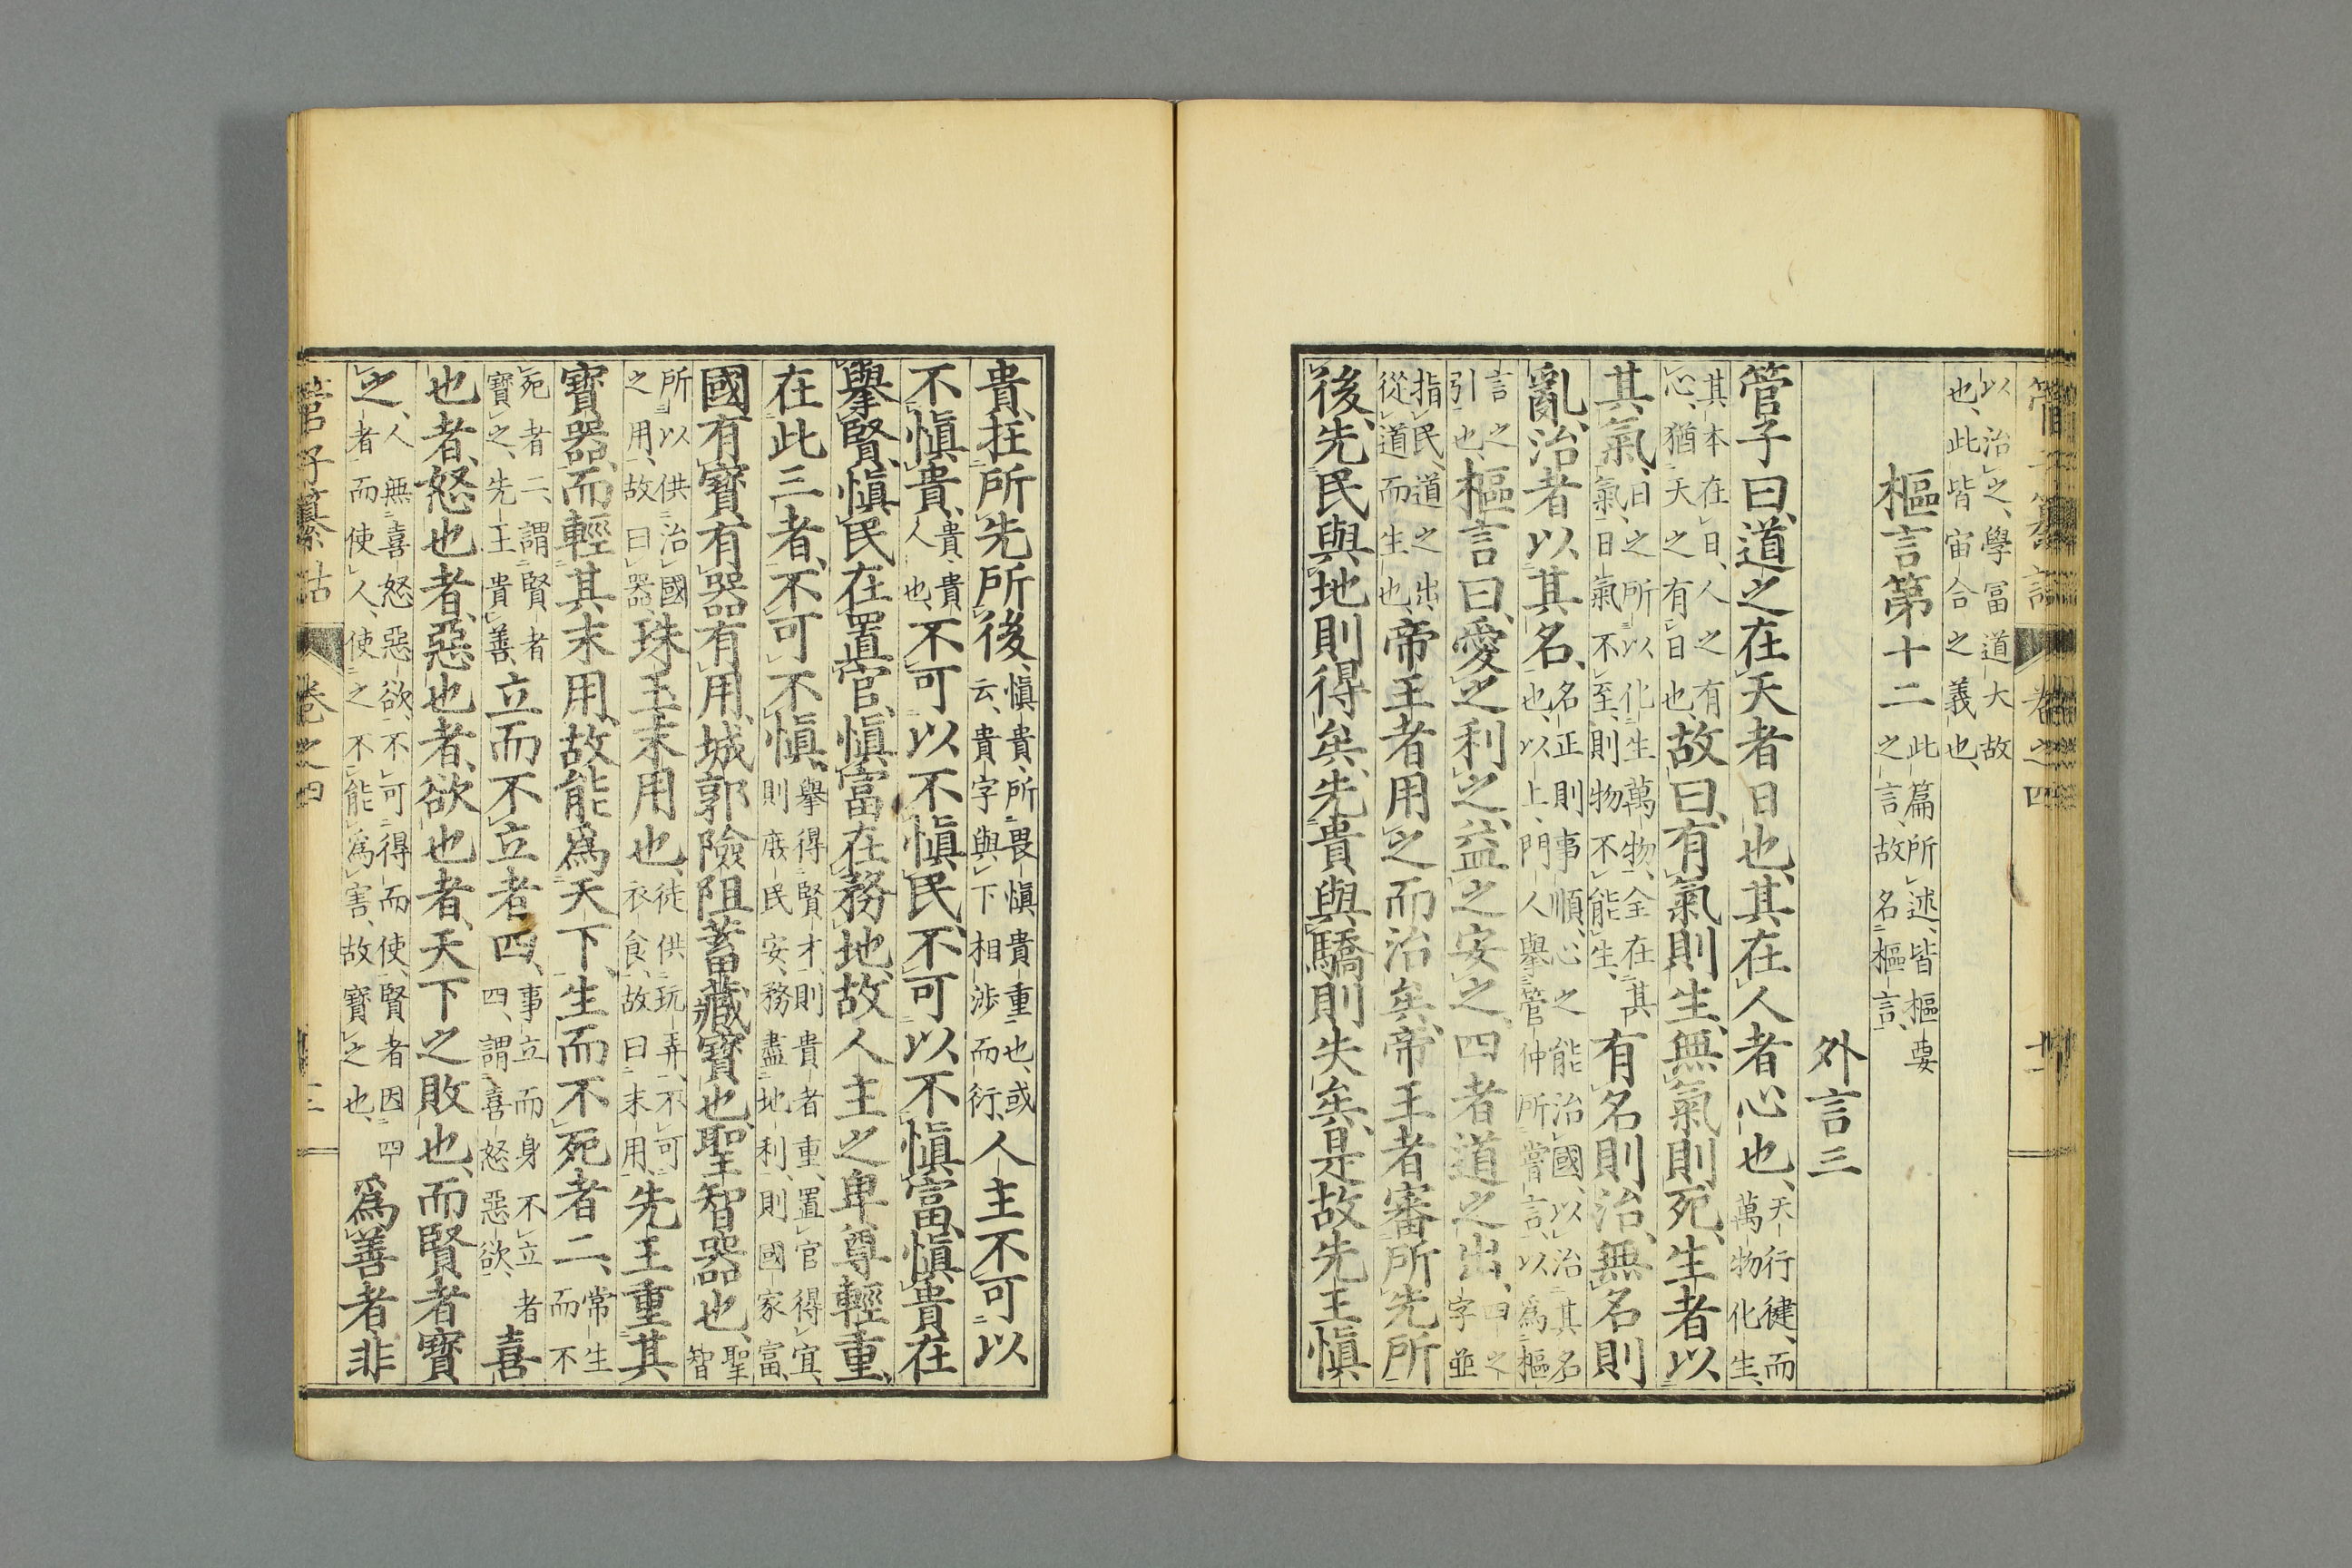 管子纂詁 卷之四
以治之、學冨道大故
也、此皆宙合之義也、
樞言第十二 此篇所述、皆樞要
之言、故名樞言、
外言三
管子曰、道之在天者日也、其在人者心也、天行健、而
萬物化生、
其本在日、人之有
心、猶天之有日也、故曰、有氣則生、無氣則死、生者以
其氣、日之所以化生萬物、全在其
氣、日氣不至、則物不能生、有名則治、無名則
亂、治者以其名、名正則事順、心之能治國、以治其名
也、以上、門人舉管仲所嘗言、以爲樞
言之
引也、樞言曰、愛之利之、益之安之、四者道之出、四之
字並
指民、道之出、
從道而生也、帝王者用之而治矣、帝王者審所先所
後、先民與地則得矣、先貴與驕則失矣、是故先王愼
貴、在所先所後、愼貴、所畏愼貴重也、或
云、貴字與下相涉而衍、人主不可以
不愼貴、貴、貴
人也、不可以不愼民、不可以不愼富、愼貴在
擧賢、愼民在置官、愼富在務地、故人主之卑尊輕重、
在此三者、不可不愼、舉得賢才、則貴者重、置官得宜、
則庶民安、務盡地利、則國家富、
國有寶、有器有用、城郭險阻蓄藏寶也、聖智器也、聖
智
所以供治國
之用、故曰器、珠玉末用也、徒供玩弄、不可
衣食、故曰末用、先王重其
寶器、而輕其末用、故能爲天下、生而不死者二、常生
而不
死者二、謂賢者
寶之、先王貴善、立而不立者四、事立而身不立者
四、謂喜怒惡欲、喜
也者、怒也者、惡也者、欲也者、天下之敗也、而賢者寶
之、人無喜怒惡欲、不可得而使、賢者因四
者而使人、使之不能爲害、故寶之也、爲善者非
管子纂詁 卷之四